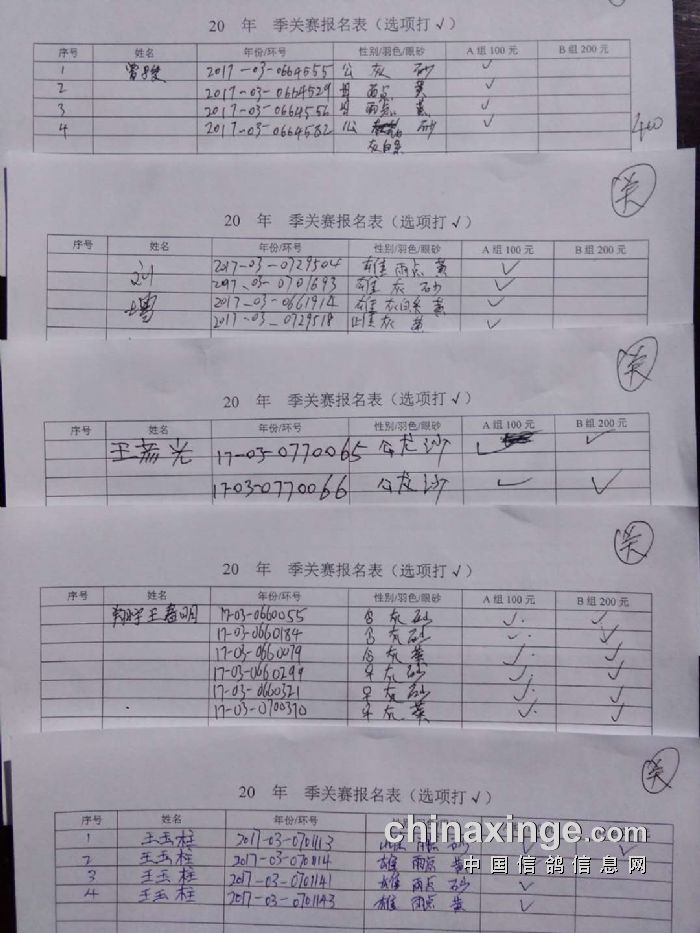 20 年 季关赛报名表（选项打√）
序号 姓名 年份/环号 性别/羽色/眼砂 A 组 100 元 B 组 200 元
1 2017-03-0664555 公 灰 砂 √
2 2017-03-0664529 雨点 黄 √
3 2017-03-0664556 雨点 黄 √
4 2017-03-0664582 公 砂 √
灰白条
400
关
20 年 季关赛报名表（选项打√）
序号 姓名 年份/环号 性别/羽色/眼砂 A 组 100 元 B 组 200 元
刘 2017-03-0729504 雄 雨点 黄 √
2017-03-0701693 雄 灰 砂 √
2017-03-0661914 雄 灰白条 黄 √
2017-03-0729518 雌 灰 黄 √
关
20 年 季关赛报名表（选项打√）
序号 姓名 年份/环号 性别/羽色/眼砂 A 组 100 元 B 组 200 元
王 光 17-03-0770065 公 灰 沙 √ √
17-03-0770066 公 灰 沙 √ √
关
20 年 季关赛报名表（选项打√）
序号 姓名 年份/环号 性别/羽色/眼砂 A 组 100 元 B 组 200 元
王春明 17-03-0660055 灰 砂 √ √
17-03-0660184 灰 砂 √ √
17-03-0660079 灰 黄 √ √
17-03-0660299 灰 砂 √ √
17-03-0660321 灰 砂 √ √
17-03-0700370 灰 黄 √ √
关
20 年 季关赛报名表（选项打√）
序号 姓名 年份/环号 A 组 100 元 B 组 200 元
1 王玉柱 2017-03-0701113 雌 雨点 砂 √ √
2 王玉柱 2017-03-0701114 雄 雨点 黄 √
3 王玉柱 2017-03-0701141 雄 雨点 砂 √
4 王玉柱 2017-03-0701143 雄 雨点 黄 √
chinaxinge.com
中国信鸽信息网